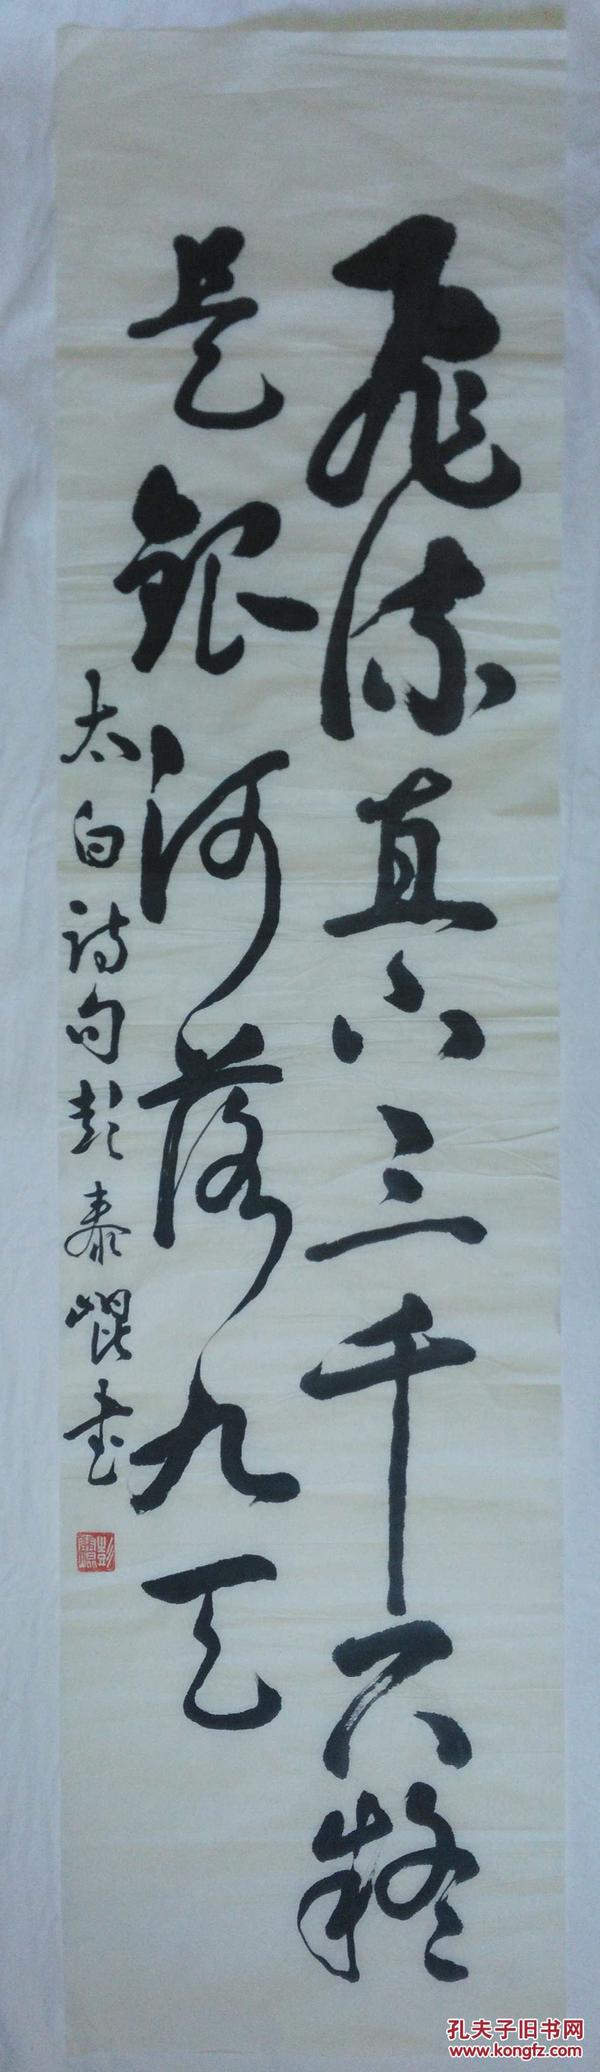 飛流直下三千尺疑
是銀河落九天
太白詩句彭泰崐書
孔夫子旧书网
www.kongfz.com